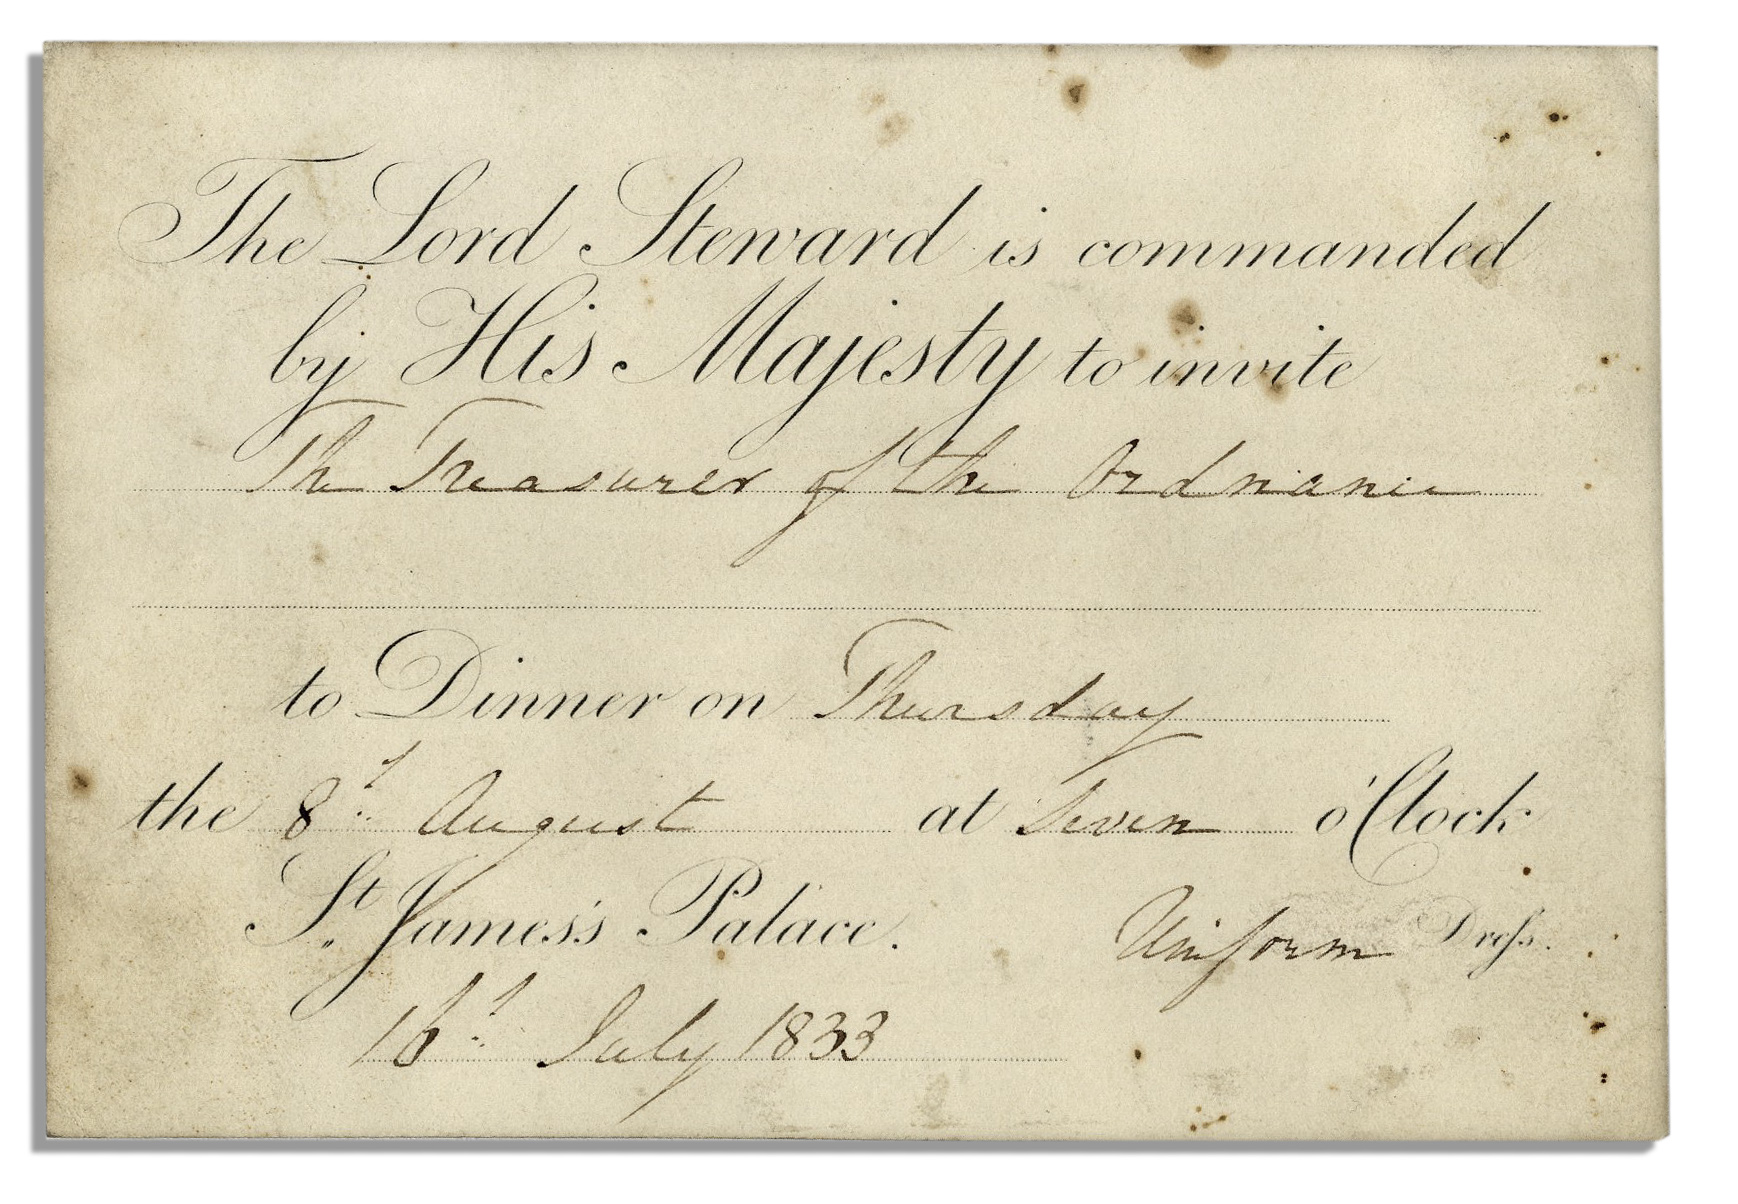 The Lord Steward is commanded
by His Majesty to invite
The Treasurer of the Ordnance
to Dinner on Thursday
the 8th August at Seven o'Clock
St. James's Palace. Uniform Dress.
16th July 1833